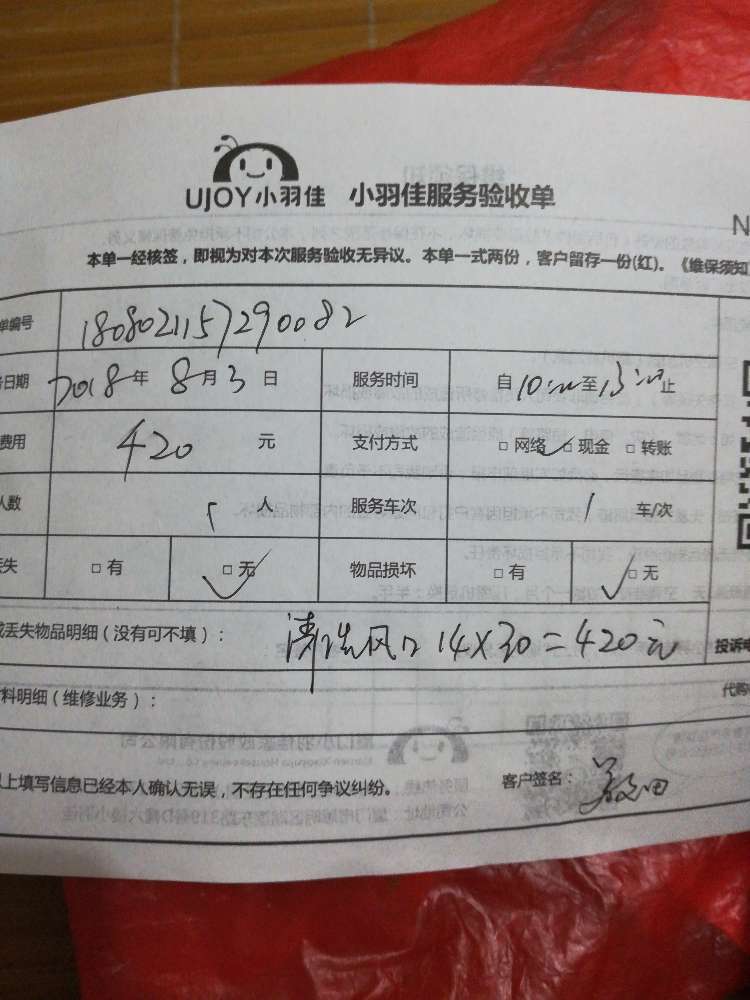 UJOY小羽佳 小羽佳服务验收单
N
本单一经核签，即视为对本次服务验收无异议。本单一式两份，客户留存一份(红)。《维保须知
单编号 1808021157290082
日期 2018年 8月3日 服务时间 自10:00至13:00止
费用 420 元 支付方式 □网络 □现金 □转账
人数 1 人 服务车次 1 车/次
丢失 □有 □无 物品损坏 □有 □无
或丢失物品明细（没有可不填）： 清洗风口 14X30=420元 投诉电
材料明细（维修业务）： 代购
以上填写信息已经本人确认无误，不存在任何争议纠纷。 客户签名：